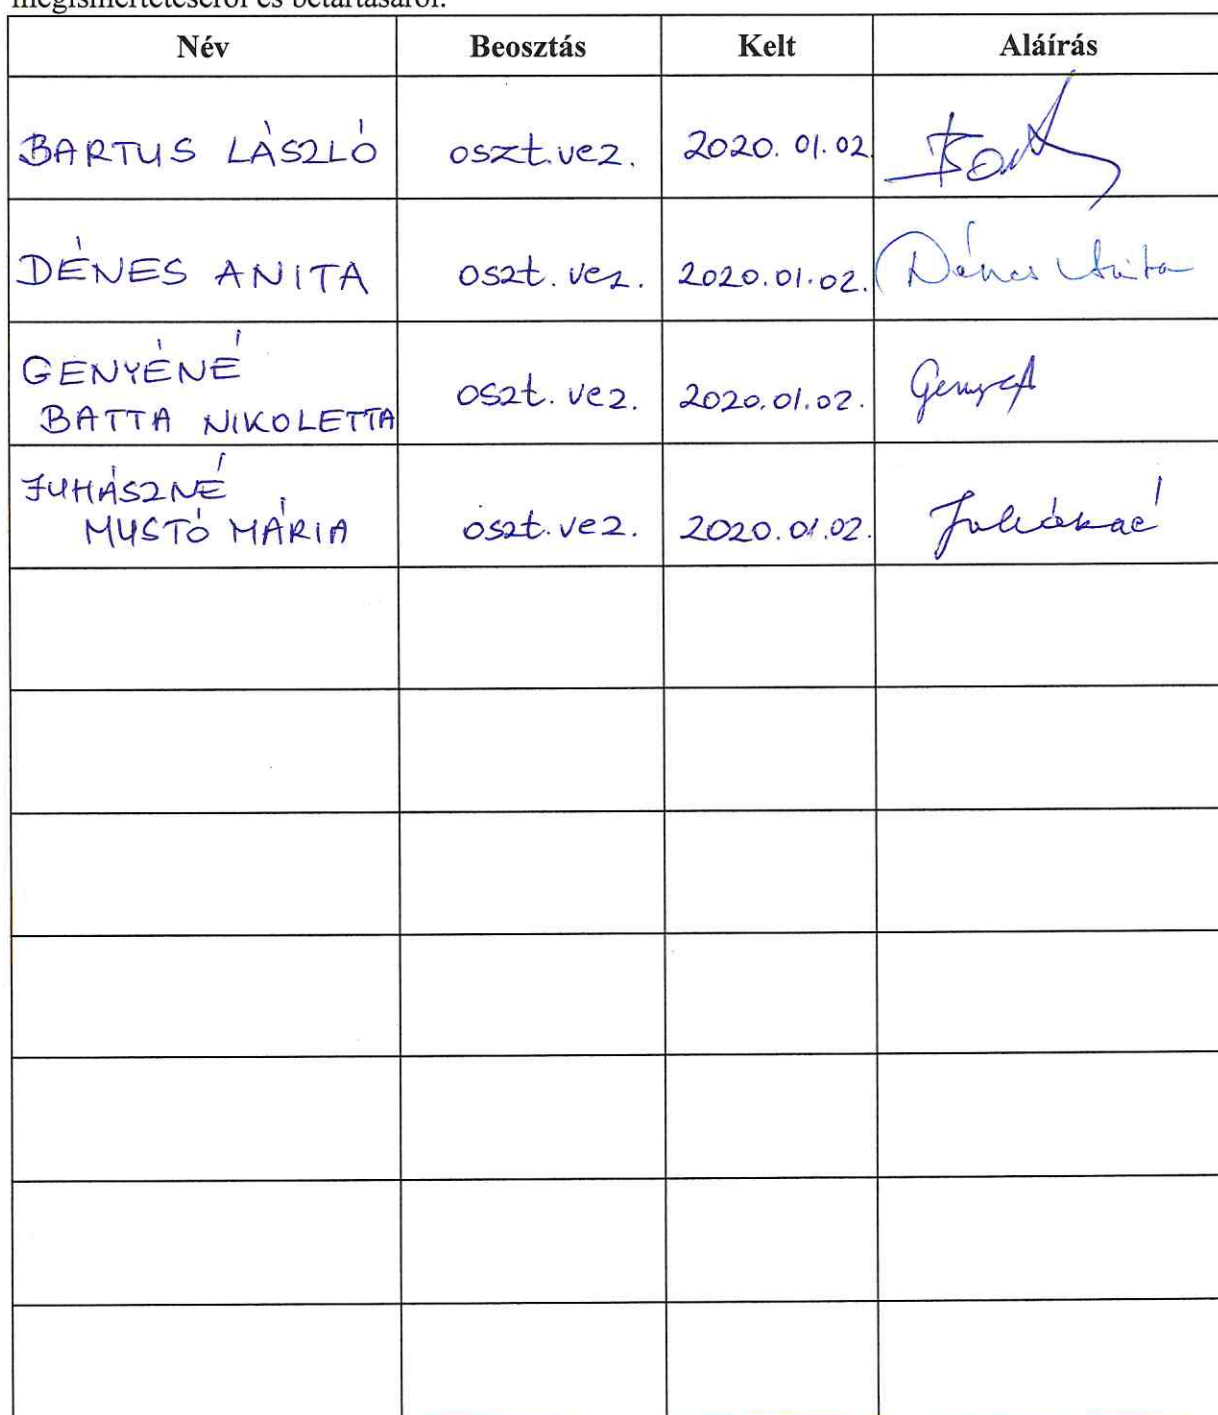 megismertetéséről és betartásáról.
Név Beosztás Kelt Aláírás
BARTUS LÁSZLÓ oszt.vez. 2020.01.02.
DÉNES ANITA oszt.vez. 2020.01.02. Dénes Anita
GENYÉNÉ
BATTA NIKOLETTA oszt.vez. 2020.01.02.
JUHÁSZNÉ
MUSTÓ MÁRIA oszt.vez. 2020.01.02.